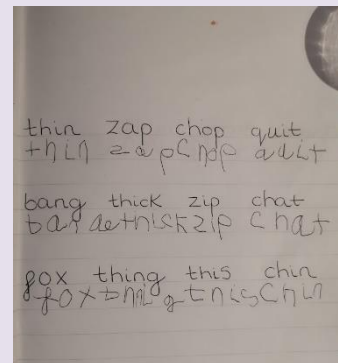 thin zap chop quit
thin zap Chop quit
bang thick zip chat
thick zip Chat
fox thing this chin
fox this Chin